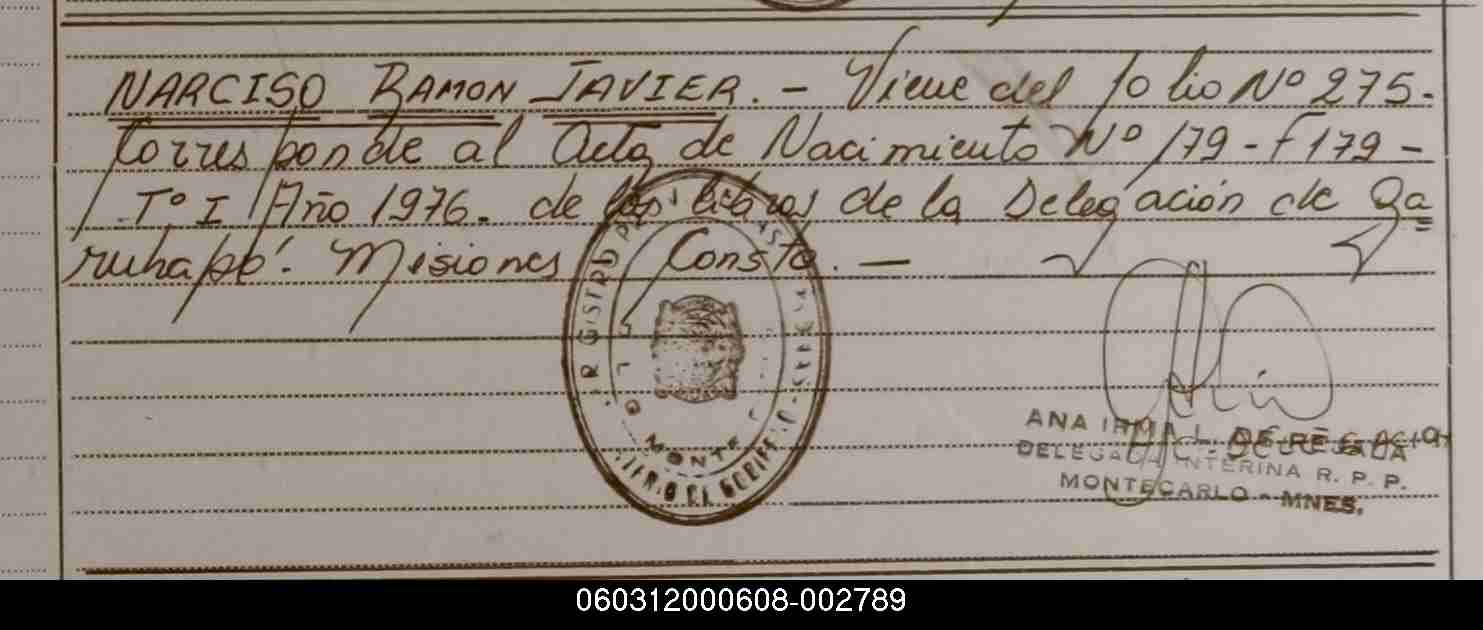 NARCISO RAMON JAVIER. - Viene del folio Nº 275.
Corresponde al Acta de Nacimiento Nº 179 - F 179 -
Tº I Año 1976. de los libros de la Delegación de Ga
ruhapé. Misiones Consta. —
ANA IRMA L. DE
DELEGADA INTERINA R. P. P.
MONTECARLO - MNES.
060312000608-002789